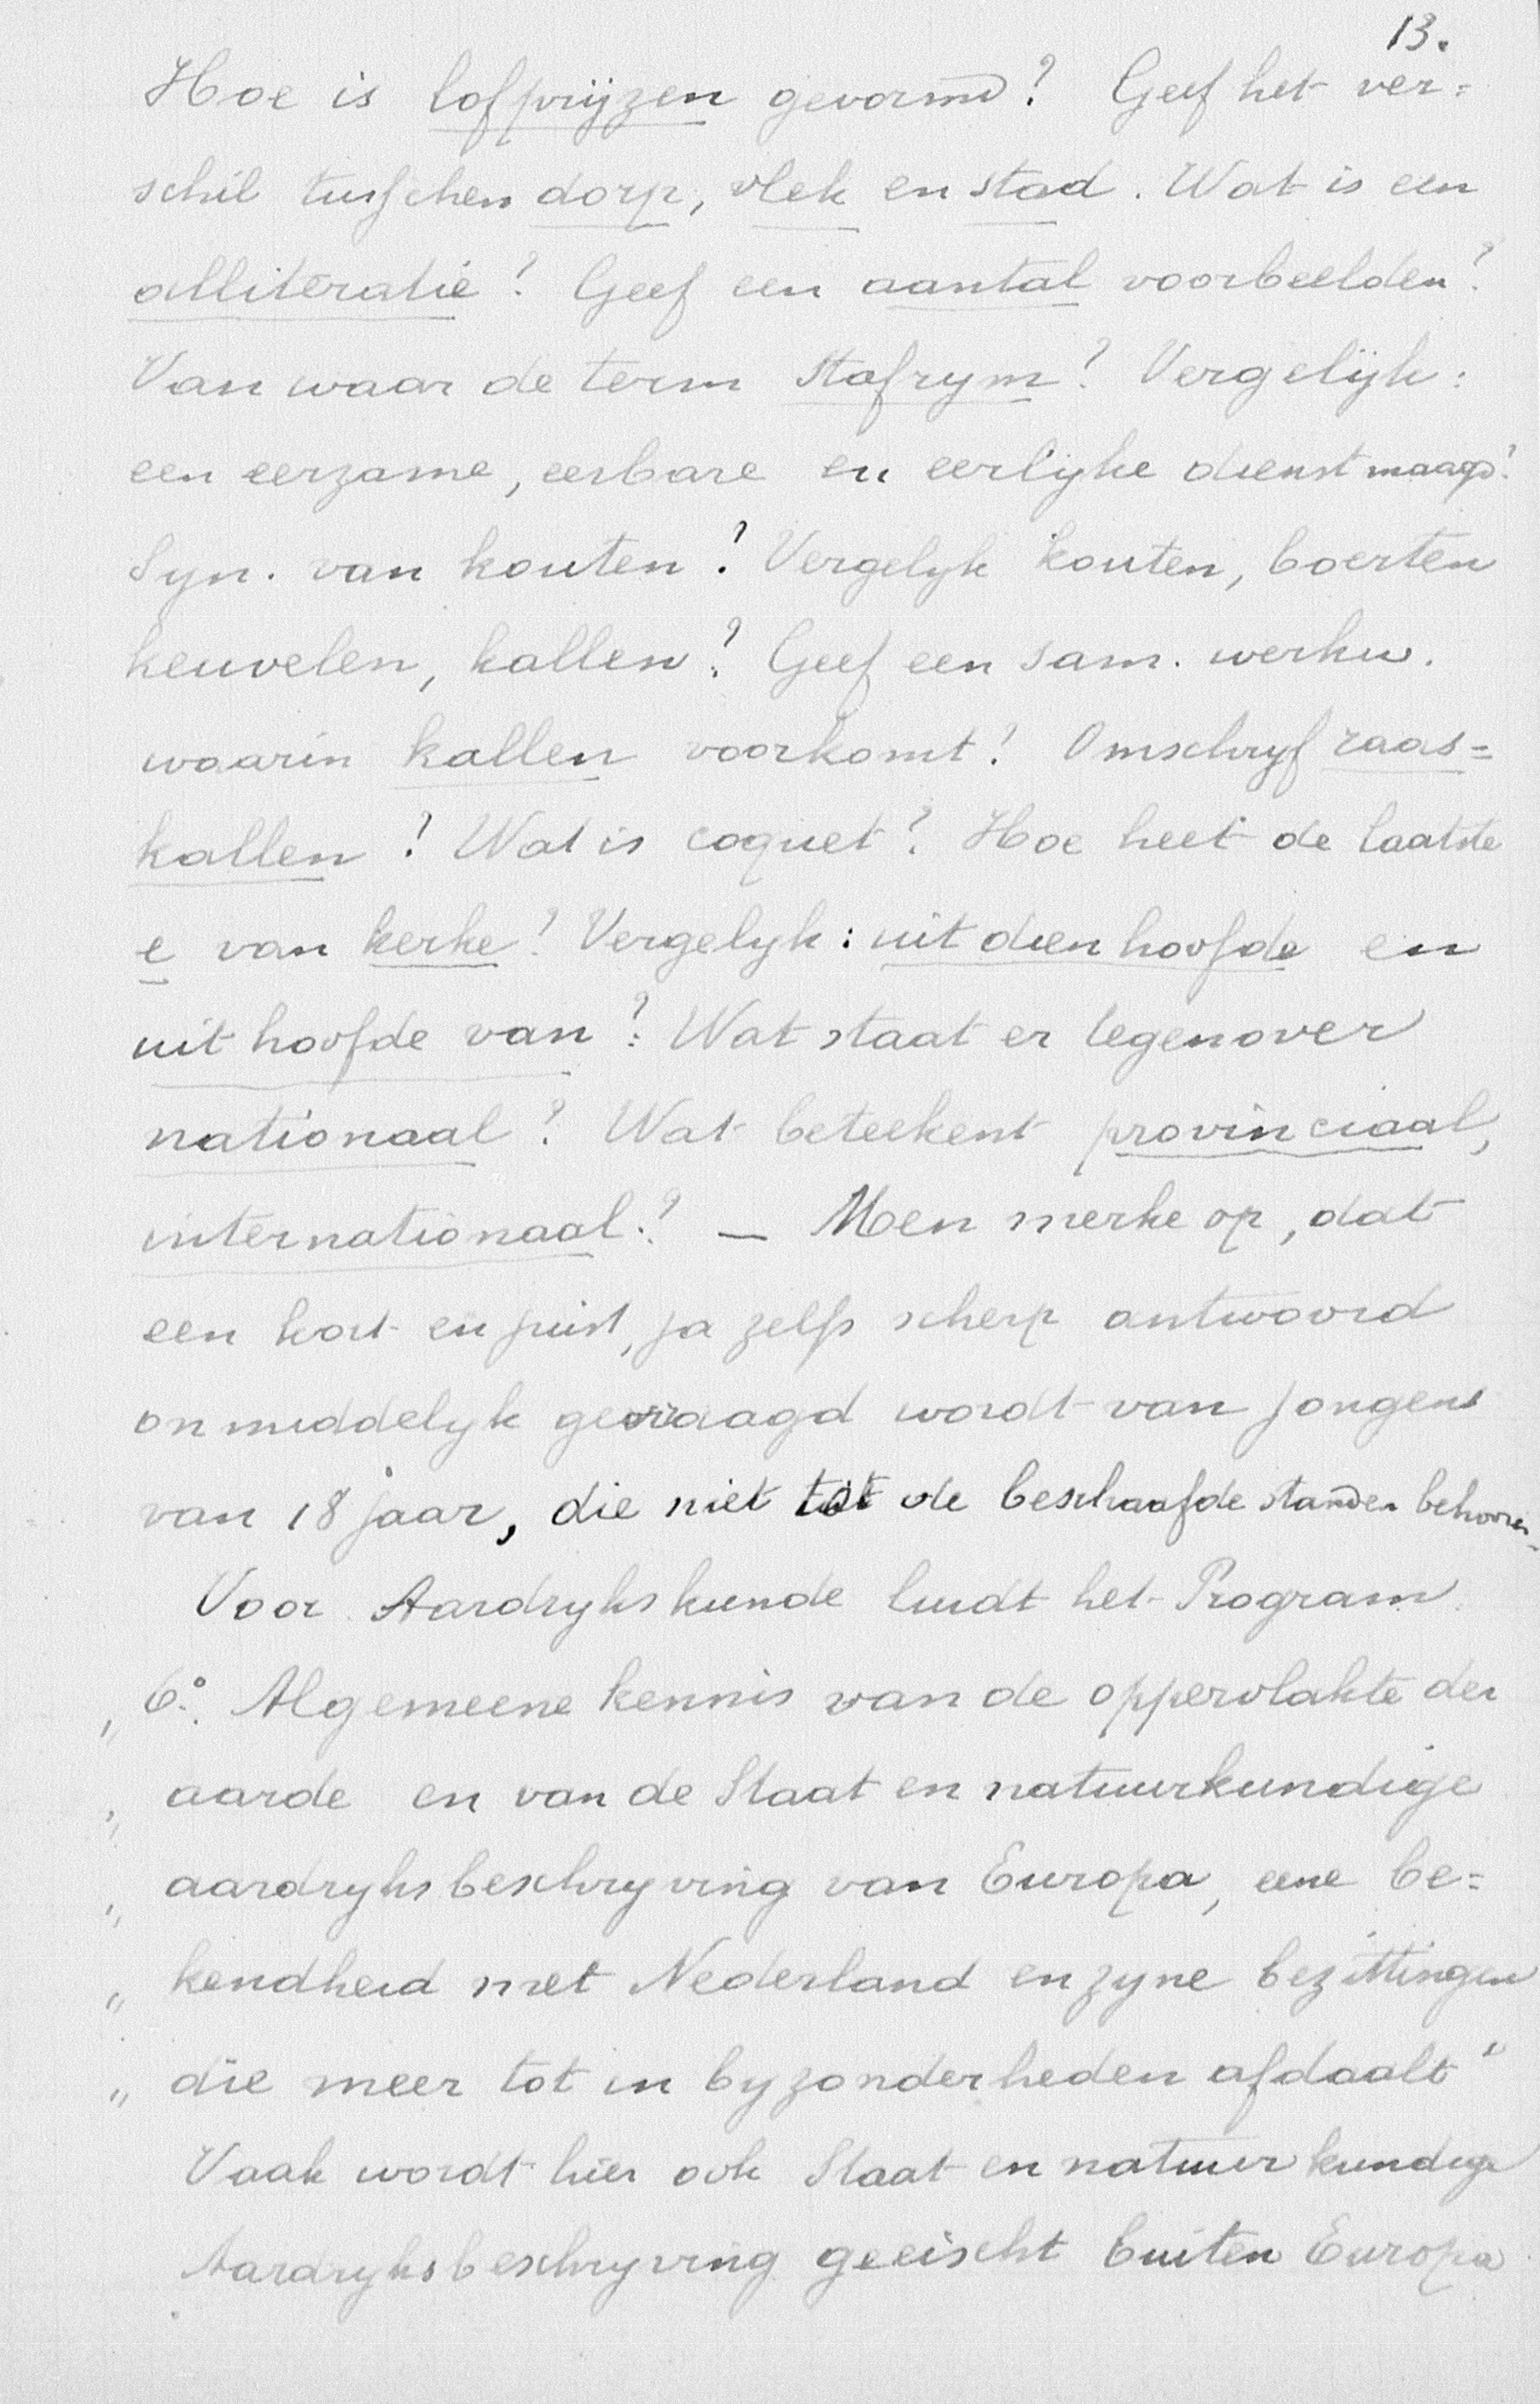 13.
Hoe is lofprijzen gevormd? Geef het ver=
schil tusschen dorp, vlek en stad. Wat is een
alliteratie? Geef een aantal voorbeelden?
Van waar de term stafrym? Vergelijk:
een eerzame, eerbare en eerlijke dienstmaagd?
Syn. van kouten? Vergelyk kouten, boerten
keuvelen, kallen? Geef een sam. werkw.
waarin kallen voorkomt! Omschryf raas=
kallen? Wat is coquet? Hoe heet de laatste
e van kerke? Vergelyk: uit dien hoofde en
uit hoofde van? Wat staat er tegenover
nationaal? Wat beteekent provinciaal,
internationaal? — Men merke op, dat
een kort en juist, ja zelfs scherp antwoord
onmiddelyk gevraagd wordt van jongens
van 18 jaar, die niet tot de beschaafde standen behooren.
Voor Aardrykskunde luidt het Program
„ 6°. Algemeene kennis van de oppervlakte der
„ aarde en van de Staat en natuurkundige
„ aardryksbeschryving van Europa, eene be=
„ kendheid met Nederland en zyne bezittingen
„ die meer tot in byzonderheden afdaalt"
Vaak wordt hier ook Staat en natuurkundige
Aardryksbeschryving geeischt buiten Europa